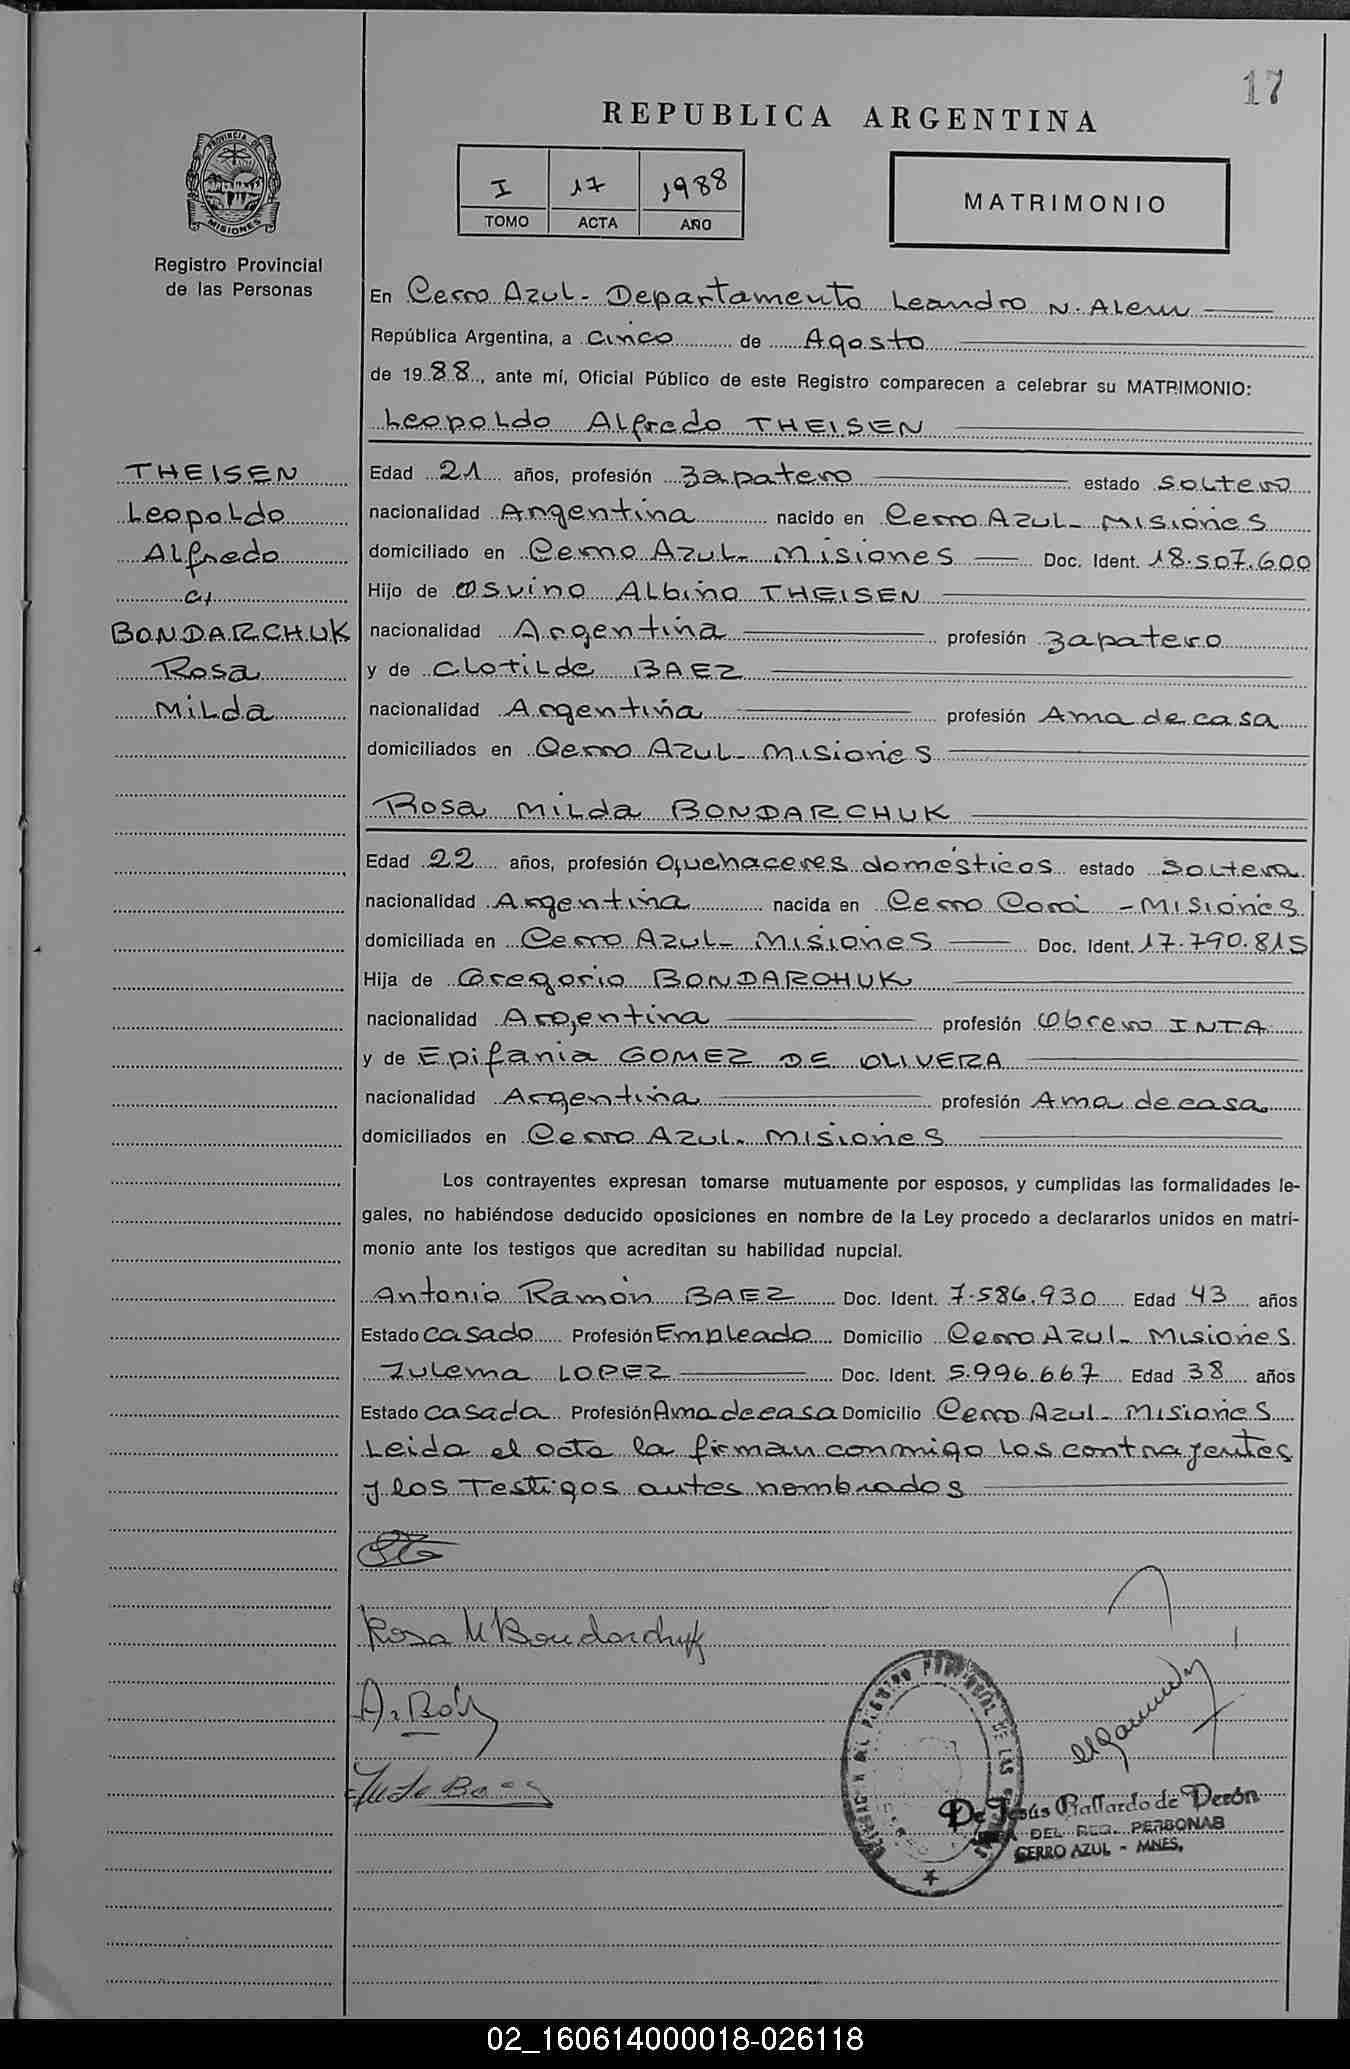 17
REPUBLICA ARGENTINA
PROVINCIA DE
MISIONES
I 17 1988
TOMO ACTA AÑO
MATRIMONIO
Registro Provincial
de las Personas
En Cerro Azul - Departamento Leandro N. Alem
República Argentina, a cinco de Agosto
de 1988, ante mí, Oficial Público de este Registro comparecen a celebrar su MATRIMONIO:
Leopoldo Alfredo THEISEN
THEISEN
Leopoldo
Alfredo
c/
BONDARCHUK
Rosa
Milda
Edad 21 años, profesión zapatero estado soltero
nacionalidad Argentina nacido en Cerro Azul - Misiones
domiciliado en Cerro Azul - Misiones Doc. Ident. 18.507.600
Hijo de Osvino Albino THEISEN
nacionalidad Argentina profesión zapatero
y de Clotilde BAEZ
nacionalidad Argentina profesión Ama de casa
domiciliados en Cerro Azul - Misiones
Rosa Milda BONDARCHUK
Edad 22 años, profesión Quehaceres domésticos estado soltera
nacionalidad Argentina nacida en Cerro Corá - Misiones
domiciliada en Cerro Azul - Misiones Doc. Ident. 17.790.815
Hija de Gregorio BONDARCHUK
nacionalidad Argentina profesión Obrero INTA
y de Epifania GOMEZ DE OLIVERA
nacionalidad Argentina profesión Ama de casa
domiciliados en Cerro Azul - Misiones
Los contrayentes expresan tomarse mutuamente por esposos, y cumplidas las formalidades le-
gales, no habiéndose deducido oposiciones en nombre de la Ley procedo a declararlos unidos en matri-
monio ante los testigos que acreditan su habilidad nupcial.
Antonio Ramón BAEZ Doc. Ident. 7.586.930 Edad 43 años
Estado casado Profesión Empleado Domicilio Cerro Azul - Misiones
Zulema LOPEZ Doc. Ident. 5.996.667 Edad 38 años
Estado casada Profesión Ama de casa Domicilio Cerro Azul - Misiones
Leida el acta la firman conmigo los contrayentes
y los Testigos antes nombrados
Rosa M Bondarchuk
A. Báez
De Jesús Gallardo de Perón
DEL REG. PERSONAS
CERRO AZUL - MNES.
02_160614000018-026118